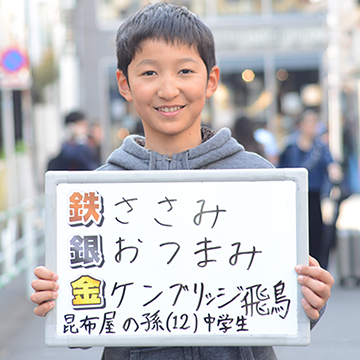 鉄 ささみ
銀 おつまみ
金 ケンブリッジ飛鳥
昆布屋の孫(12)中学生